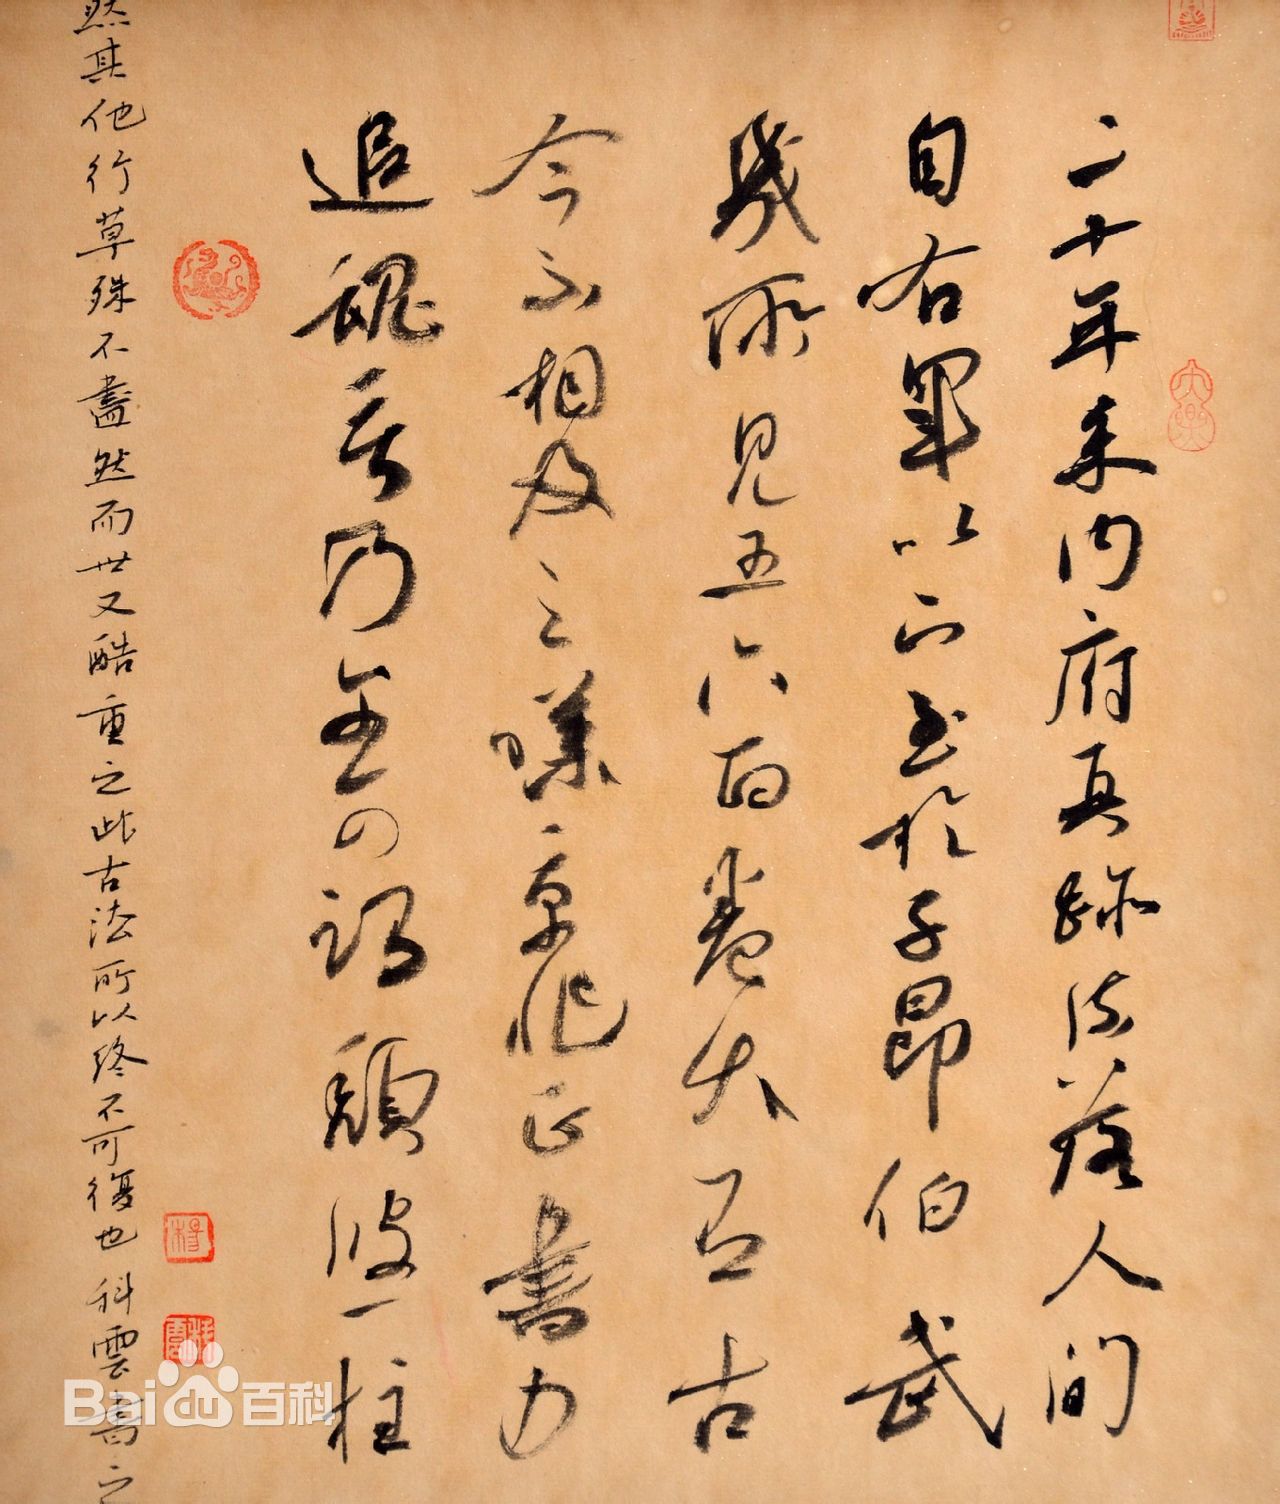 二十年来内府真跡流落人间
自右軍以下至於子昂伯武
幾所見五六百卷大古
今不相及之嘆京兆正書力
追魏晋乃可謂頹波一柱
然其他行草殊不盡然而世又酷重之此古法所以終不可復也科雲書之
Bai百科